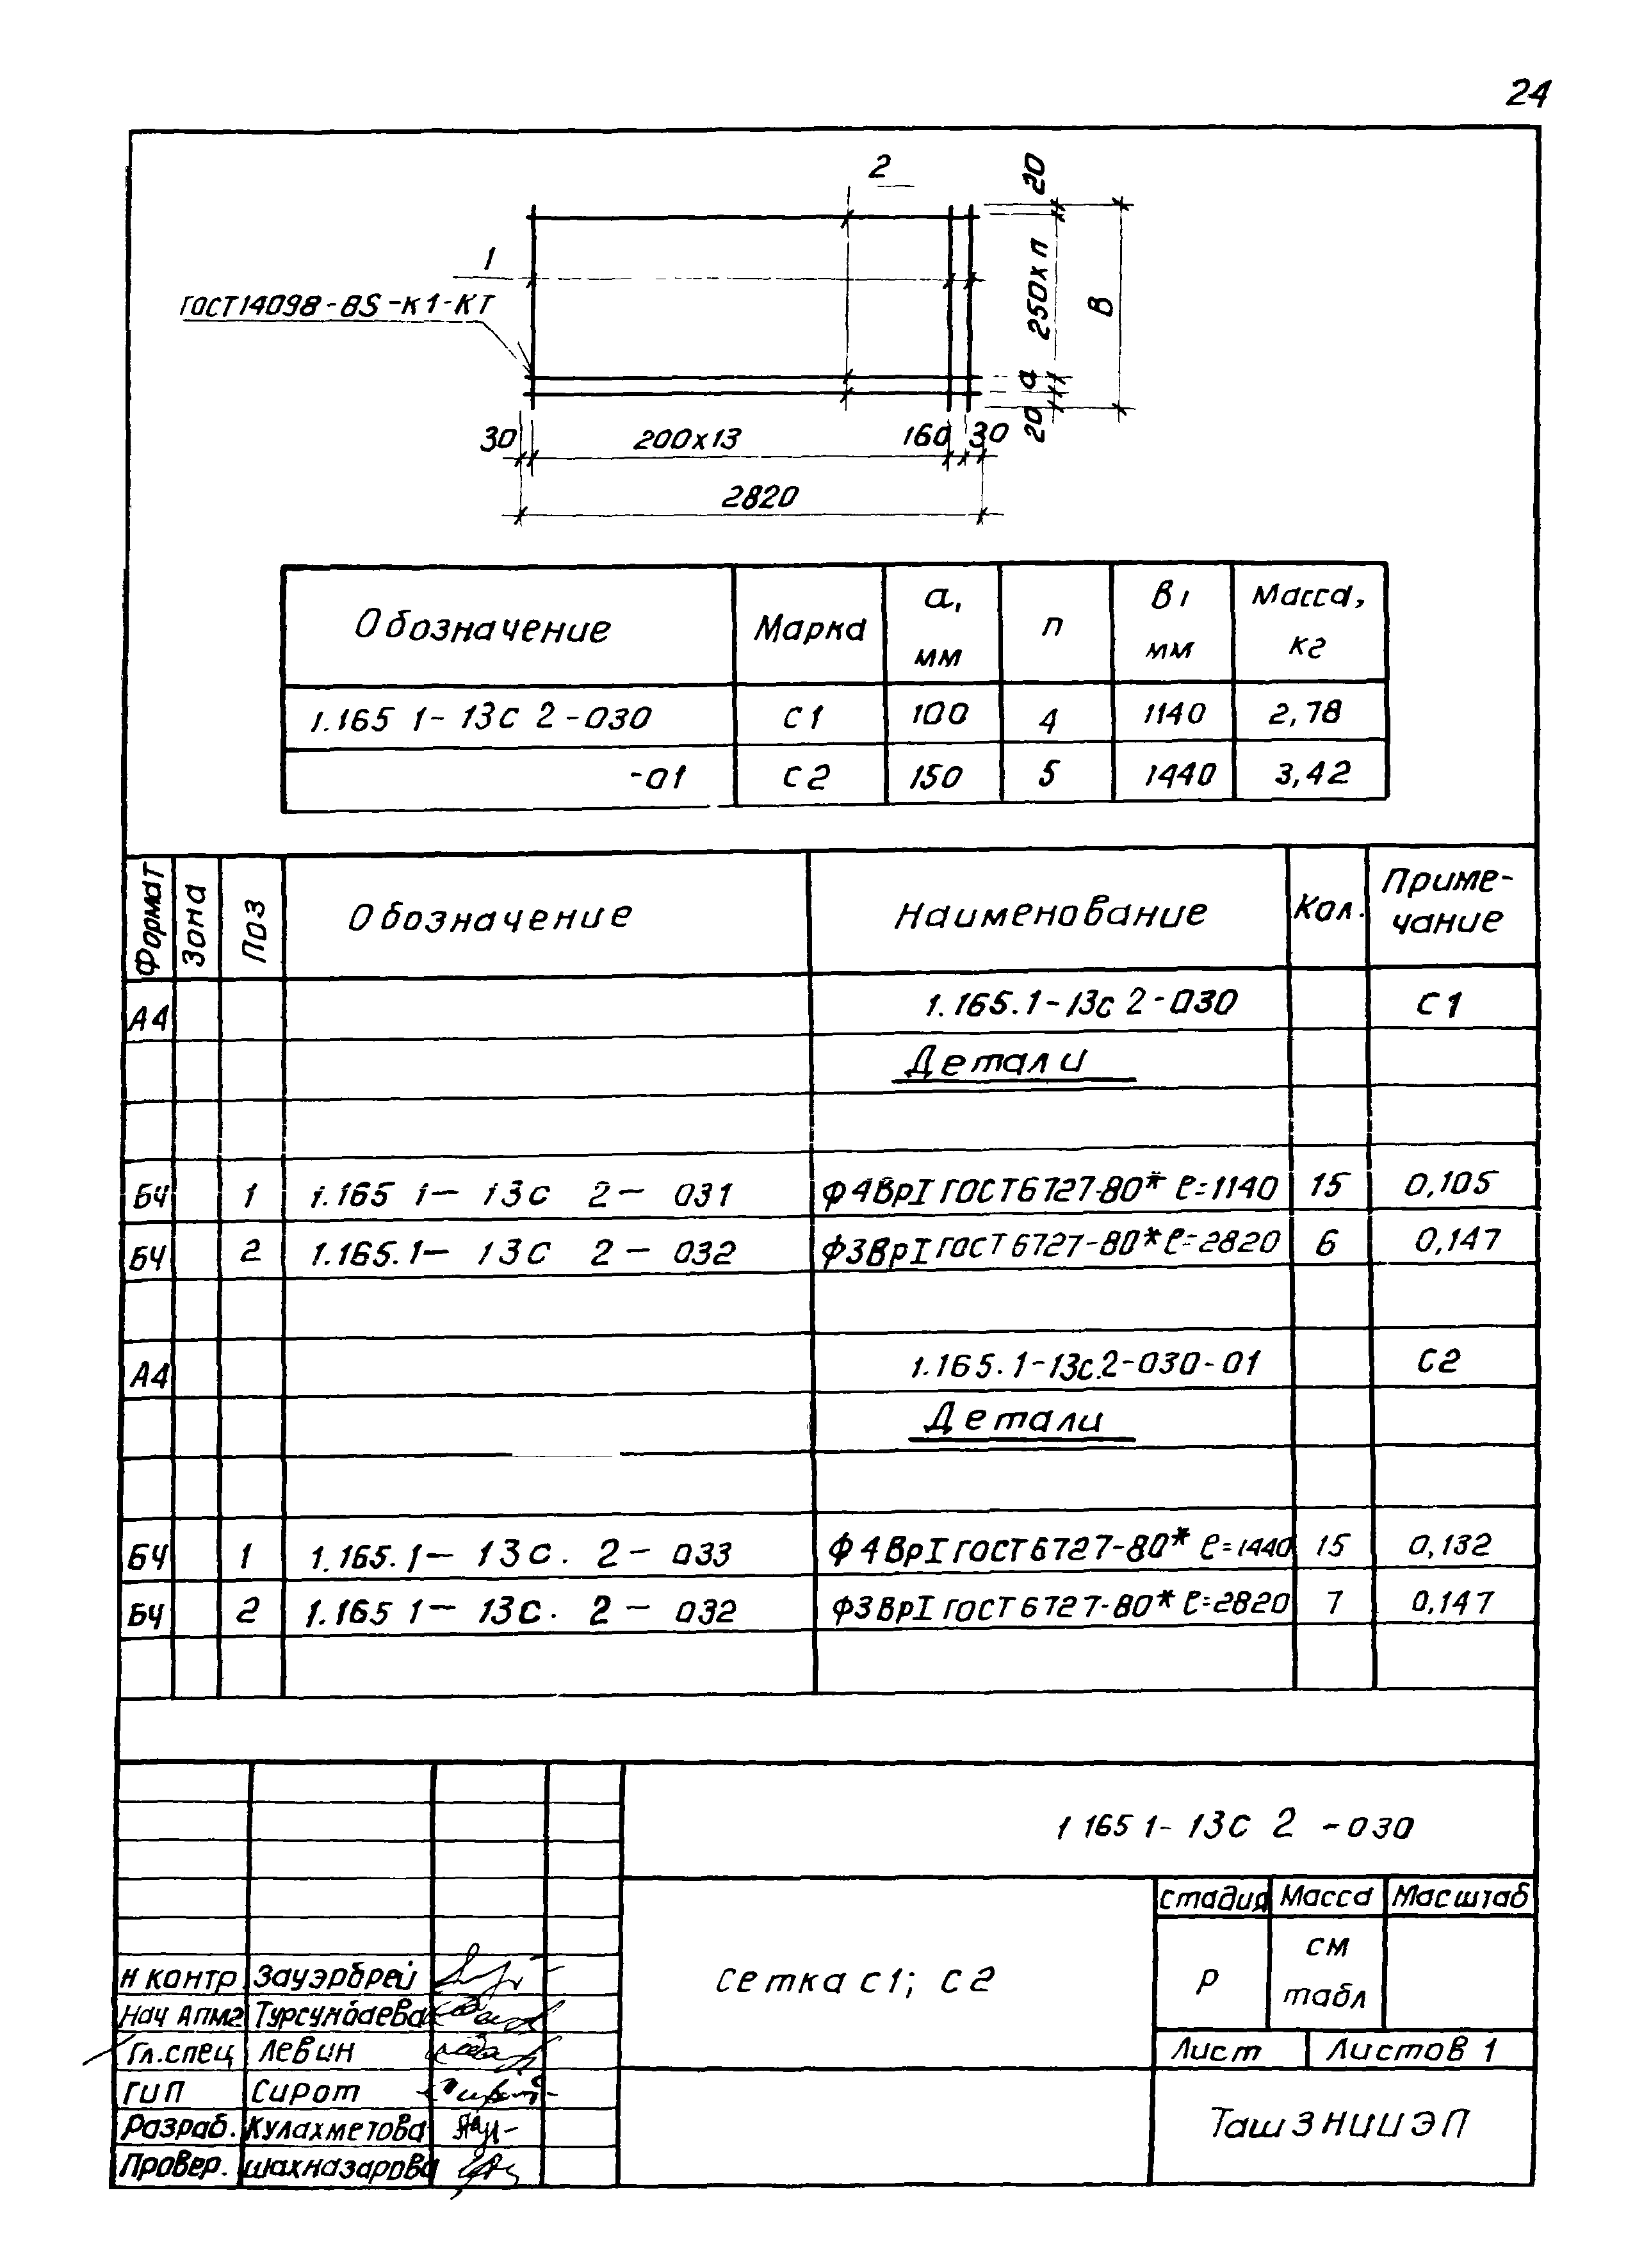 24
2
1
ГОСТ14098-BS-К1-КТ
20
250хп
а
20
В
30 200х13 160 30
2820
Обозначение Марка а, мм п В, мм Масса, кг
1.165 1- 13с 2-030 С1 100 4 1140 2,78
-01 С2 150 5 1440 3,42
Формат Зона Поз Обозначение Наименование Кол. Приме-
чание
А4 1.165.1-13с 2-030 С1
Детали
БЧ 1 1.165 1- 13с 2- 031 Ф4ВрI ГОСТ6727-80* ℓ=1140 15 0,105
БЧ 2 1.165.1- 13с 2- 032 Ф3ВрI ГОСТ6727-80* ℓ=2820 6 0,147
А4 1.165.1-13с.2-030-01 С2
Детали
БЧ 1 1.165.1- 13с. 2- 033 Ф4ВрI ГОСТ6727-80* ℓ=1440 15 0,132
БЧ 2 1.165 1- 13с. 2- 032 Ф3ВрI ГОСТ6727-80* ℓ=2820 7 0,147
1 165 1- 13с 2 -030
Стадия Масса Масштаб
Сетка С1; С2
Р см
табл
Лист Листов 1
ТашЗНИИЭП
Н контр. Зауэрбрей
Нач АПМ2 Турсунбаева
Гл.спец Левин
ГиП Сирот
Разраб. Кулахметова
Провер. Шахназарова